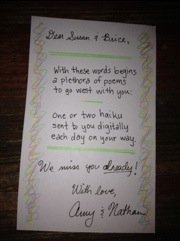 Dear Susan & Bruce,
With these words begins
a plethora of poems
to go west with you:
One or two haiku
sent to you digitally
each day on your way.
We miss you already!
With love,
Amy & Nathan